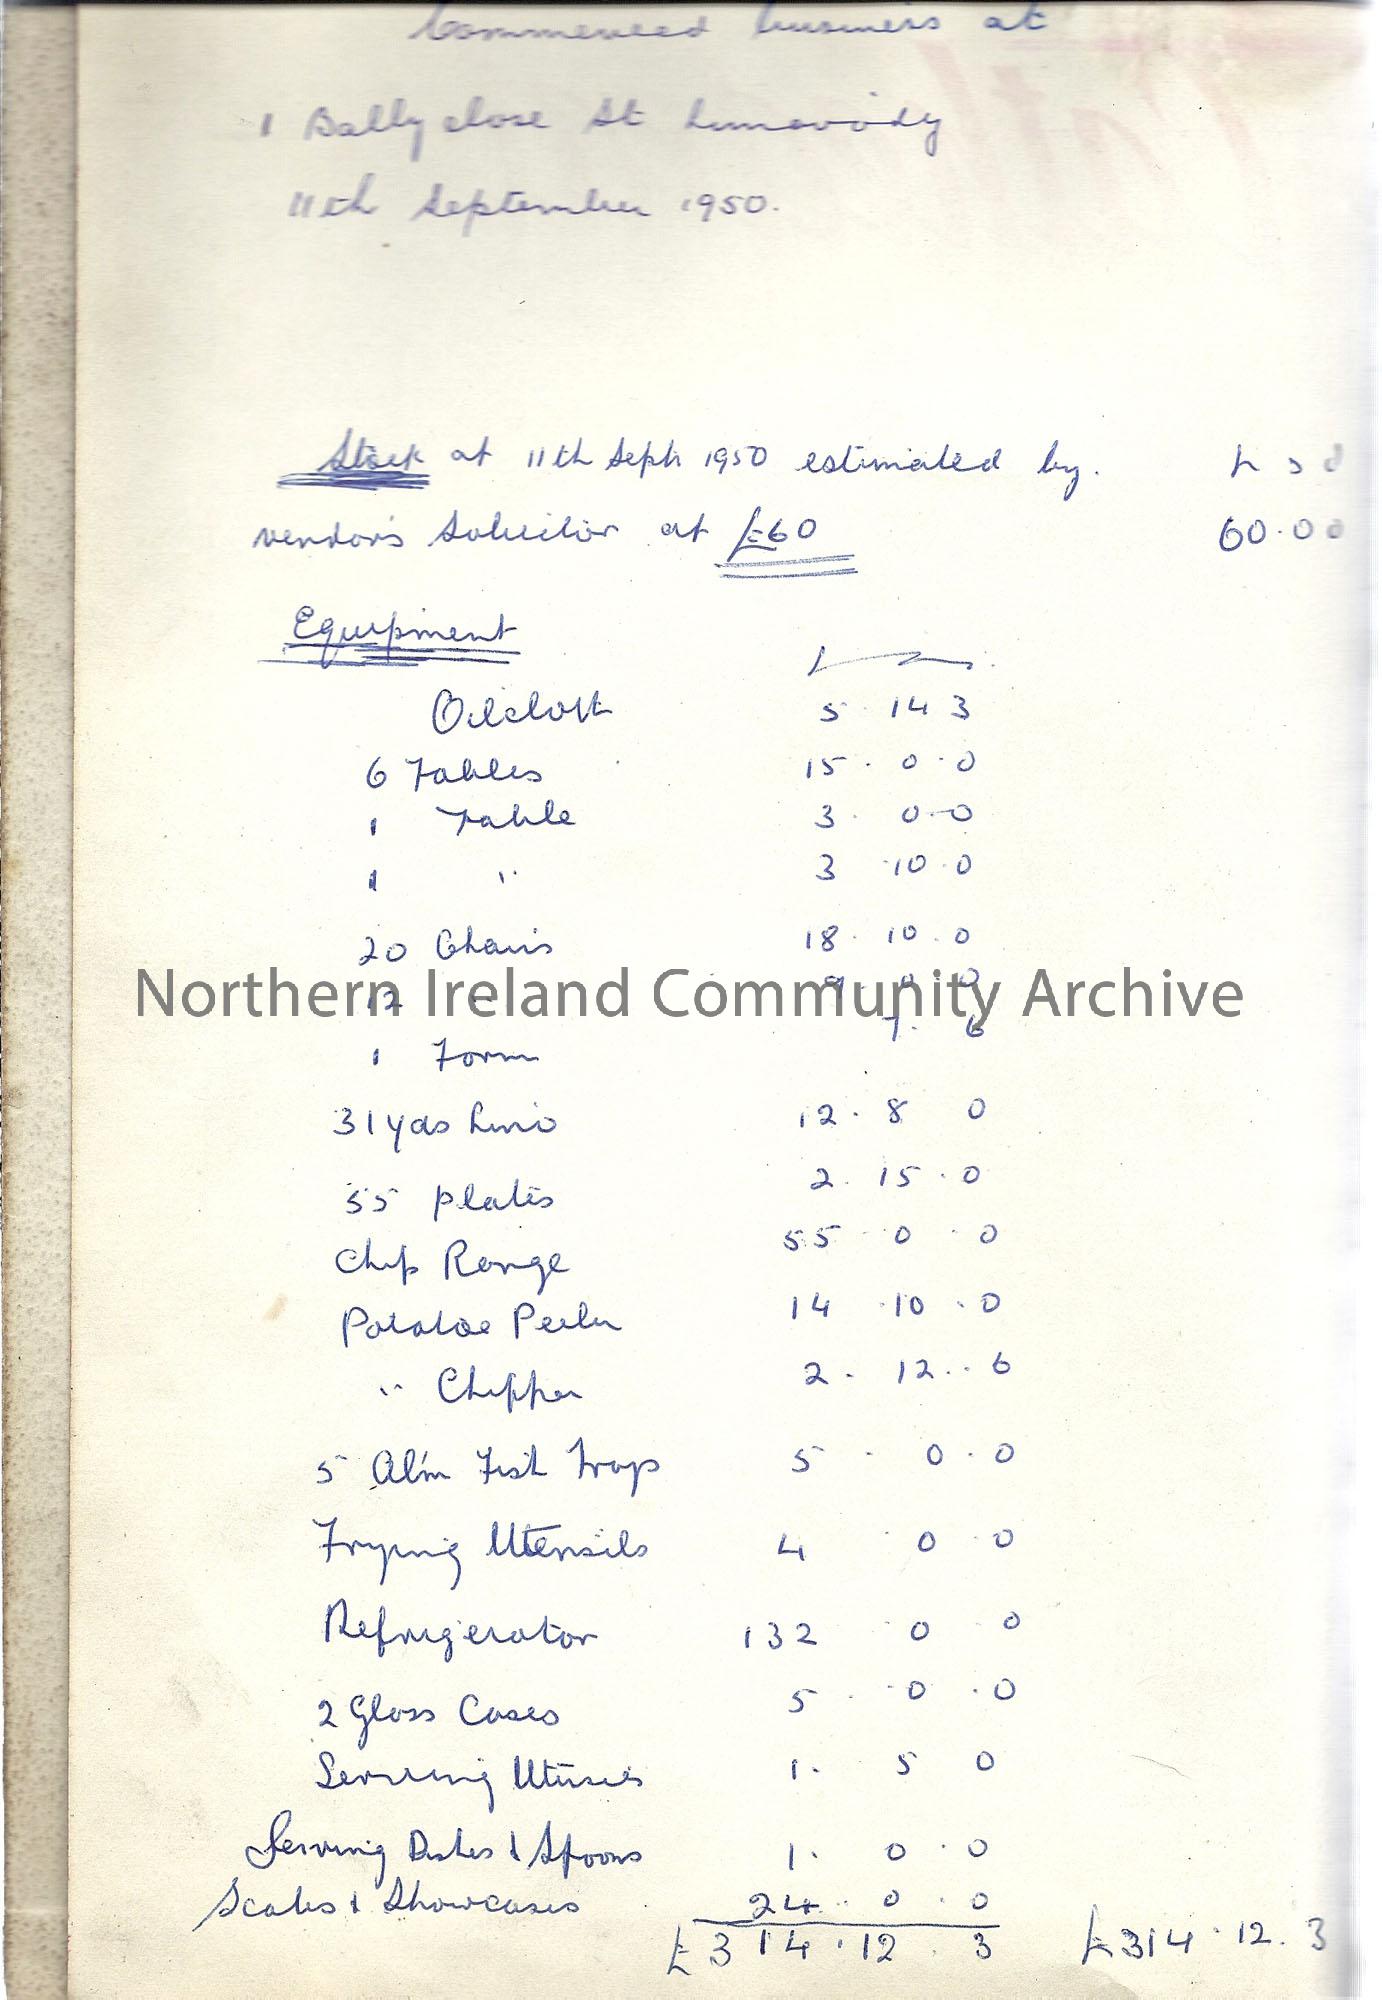 Commenced business at
1 Ballyclose St Limavady
11th September 1950.
Stock at 11th Sept 1950 estimated by. £ s d
vendor's solicitor at £60 60.0 0
Equipment
Oilcloth 5 14 3
6 Tables 15. 0. 0
1 Table 3. 0-0
1 " 3 10.0
20 Chairs 18. 10. 0
12 " 9. 0 0
Northern Ireland Community Archive
1 Form 7. 6
31 yds Lino 12. 8 0
55 plates 2. 15. 0
Chip Range 55 0 0
Potatoe Peeler 14 .10 . 0
" Chipper 2. 12.. 6
5 Al'm Fish Trays 5 . 0 . 0
Frying Utensils 4 0 0
Refrigerator 132 0 0
2 Glass Cases 5 . 0 . 0
Serving 1. 5 0
Serving Dishes & Spoons 1. 0 . 0
Scales & Showcases 24. 0 . 0
£314.12.3 £314.12.3